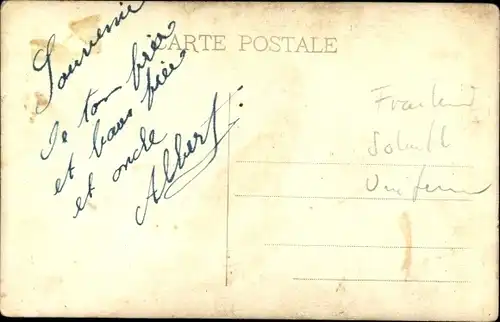 CARTE POSTALE
Souvenir
de ton frère
et beau frère
et oncle
Albert
Frankreich
Soldat
Uniform